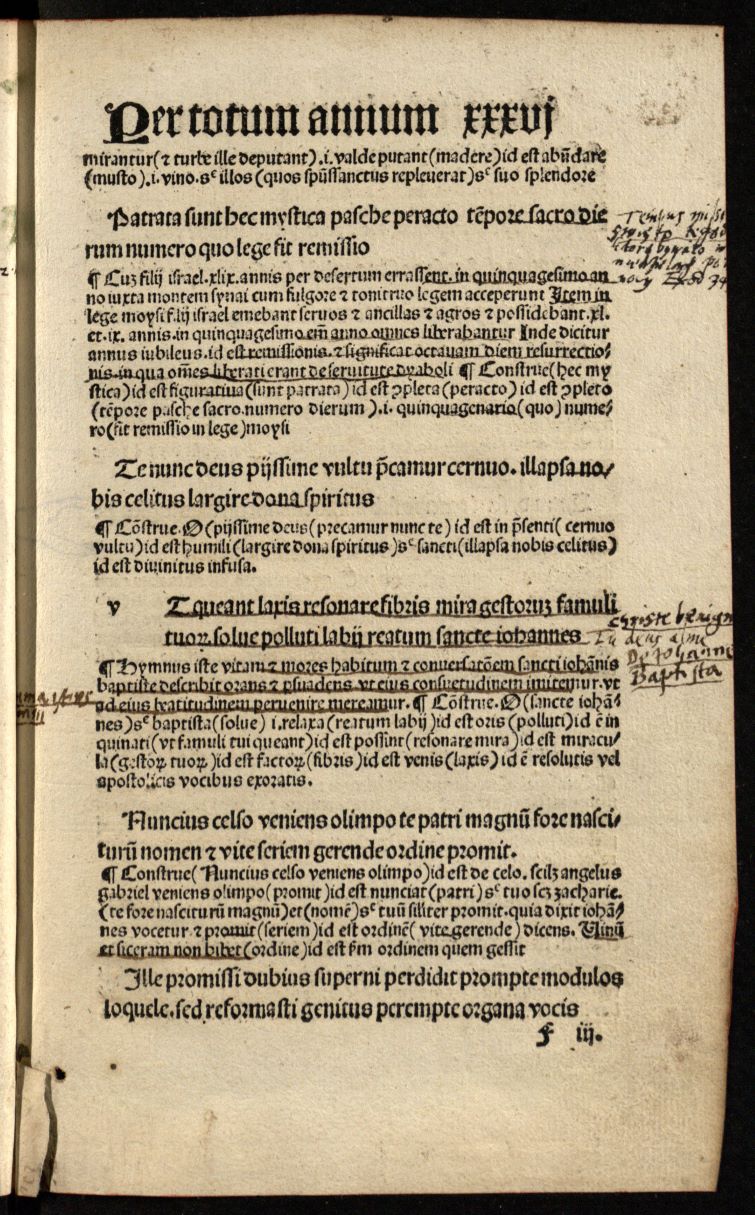 Per totum annum xxxvj
mirantur(⁊ turbe ille deputant).i.valde putant(madere)id est abūdare
(musto).i.vino.sᶜ illos (quos spūssanctus repleuerat)sᶜ suo splendore
Patrata sunt hec mystica pasche peracto tēpore sacro die
rum numero quo lege fit remissio
¶ Cuz filij israel.xlix.annis per desertum errassent.in quinquagesimo an
no iuxta montem synai cum fulgore ⁊ tonitruo legem acceperunt Item in
lege moysi filij israel emebant seruos ⁊ ancillas ⁊ agros ⁊ possidebant.xl.
et.ix. annis.in quinquagesimo em̄ anno omnes liberabantur Inde dicitur
annus iubileus.id est remissionis.⁊ significat octauam diem resurrectio⸗
nis.in qua om̄es liberati erant de seruitute dyaboli ¶ Construe(hec my
stica)id est figuratiua(sunt patrata)id est ꝯpleta(peracto)id est ꝯpleto
(tēpore pasche sacro.numero dierum).i. quinquagenario(quo)nume⸗
ro(fit remissio in lege)moysi
Te nunc deus pijssime vultu p̄camur cernuo.illapsa no⸗
bis celitus largire dona spiritus
¶ Cōstrue.O(pijssime deus(precamur nunc te)id est in p̄senti(cernuo
vultu)id est humili(largire dona spiritus)sᶜ sancti(illapsa nobis celitus)
id est diuinitus infusa.
v T queant laxis resonare fibris mira gestoruz famuli
tuoꝝ.solue polluti labij reatum sancte iohannes
¶ Hymnus iste vitam ⁊ mores habitum ⁊ conuersatōem sancti iohānis
baptiste describit orans ⁊ psuadens vt eius consuetudinem imitemur.vt
ad eius beatitudinem peruenire mereamur. ¶ Cōstrue.O(sancte iohā⸗
nes)sᶜ baptista(solue) i.relaxa(reatum labij)id est oris(polluti)id ē in
quinati(vt famuli tui queant)id est possint(resonare mira)id est miracu⸗
la(gestoꝝ tuoꝝ)id est factoꝝ(fibris)id est venis(laxis)id ē resolutis vel
apostolicis vocibus exoratis.
Nuncius celso veniens olimpo te patri magnū fore nasci⸗
turū nomen ⁊ vite seriem gerende ordine promit.
¶ Construe(Nuncius celso veniens olimpo)id est de celo.scilꝫ angelus
gabriel veniens olimpo(promit)id est nunciat(patri)sᶜ tuo scꝫ zacharie.
(te fore nasciturū magnū)et(nomē)sᶜ tuū siliter promit.quia dixit iohā⸗
nes vocetur ⁊ promit(seriem)id est ordinē(vite gerende)dicens. Uinū
et siceram non bibet(ordine)id est fm̄ ordinem quem gessit
Ille promissi dubius superni perdidit prompte modulos
loquele.sed reformasti genitus perempte organa vocis
f iij.
Christe benign
Tu deus alme
De Iohanne
Baptista